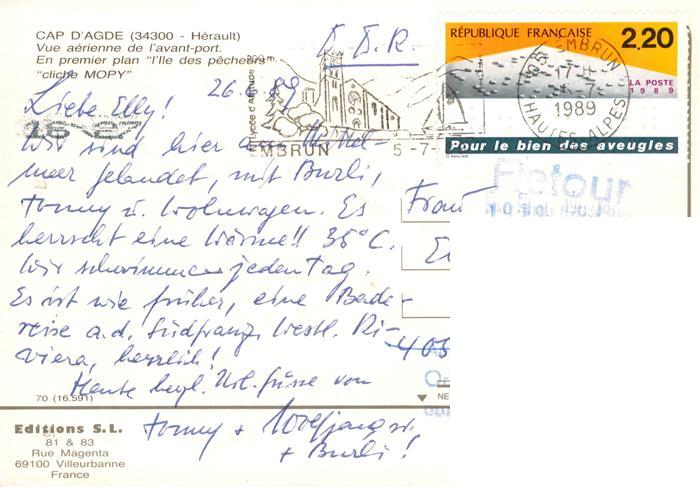 CAP D'AGDE (34300 - Hérault)
Vue aérienne de l'avant-port.
En premier plan "l'Ile des pêcheurs"
"cliché MOPY"
RÉPUBLIQUE FRANÇAISE 2,20
LA POSTE
1989
Pour le bien des aveugles
EMBRUN
1989
HAUTES-ALPES
EMBRUN 5-7-
Retour
26.
Liebe Elly!
Wir sind hier am Mittel-
meer gelandet, mit Burli,
Tommy u. Wohnwagen. Es
herrscht eine Wärme!! 35°C.
Wir schwimmen jeden Tag.
Es ist wie früher, eine Bade-
reise a.d. Südfranz. Westl. Ri-
viera, herrlich!
Heute herzl. Url. grüsse von
Tommy + Wolfgang
+ Burli!
Frau
405
70 (16.591)
NE
Editions S.L.
81 & 83
Rue Magenta
69100 Villeurbanne
France